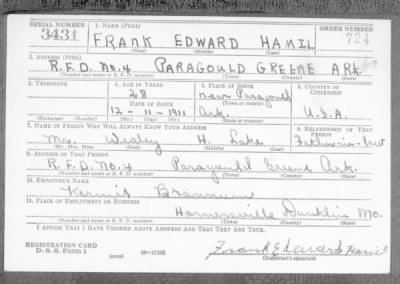 SERIAL NUMBER 1. NAME (Print) ORDER NUMBER
3431 FRANK EDWARD HAMIL 724
(First) (Middle) (Last)
2. ADDRESS (Print)
R.F.D. No.4 PARAGOULD GREENE ARK.
(Number and street or R. F. D. number) (Town) (County) (State)
3. TELEPHONE 4. AGE IN YEARS 5. PLACE OF BIRTH 6. COUNTRY OF CITIZENSHIP
28 near Paragould
DATE OF BIRTH (Town or county)
12-11-1911 Ark. U.S.A.
(Exchange) (Number) (Mo.) (Day) (Yr.) (State or country)
7. NAME OF PERSON WHO WILL ALWAYS KNOW YOUR ADDRESS 8. RELATIONSHIP OF THAT PERSON
Mr. Wesley H. Lake Father-in-law
(Mr., Mrs., Miss) (First) (Middle) (Last)
9. ADDRESS OF THAT PERSON
R.F.D. No.4 Paragould Greene Ark.
(Number and street or R. F. D. number) (Town) (County) (State)
10. EMPLOYER'S NAME
Kermit
11. PLACE OF EMPLOYMENT OR BUSINESS
Hornersville Dunklin Mo.
(Number and street or R. F. D. number) (Town) (County) (State)
I AFFIRM THAT I HAVE VERIFIED ABOVE ANSWERS AND THAT THEY ARE TRUE.
REGISTRATION CARD
D. S. S. Form 1 16-17105 Frank Edward Hamil
(Registrant's signature)